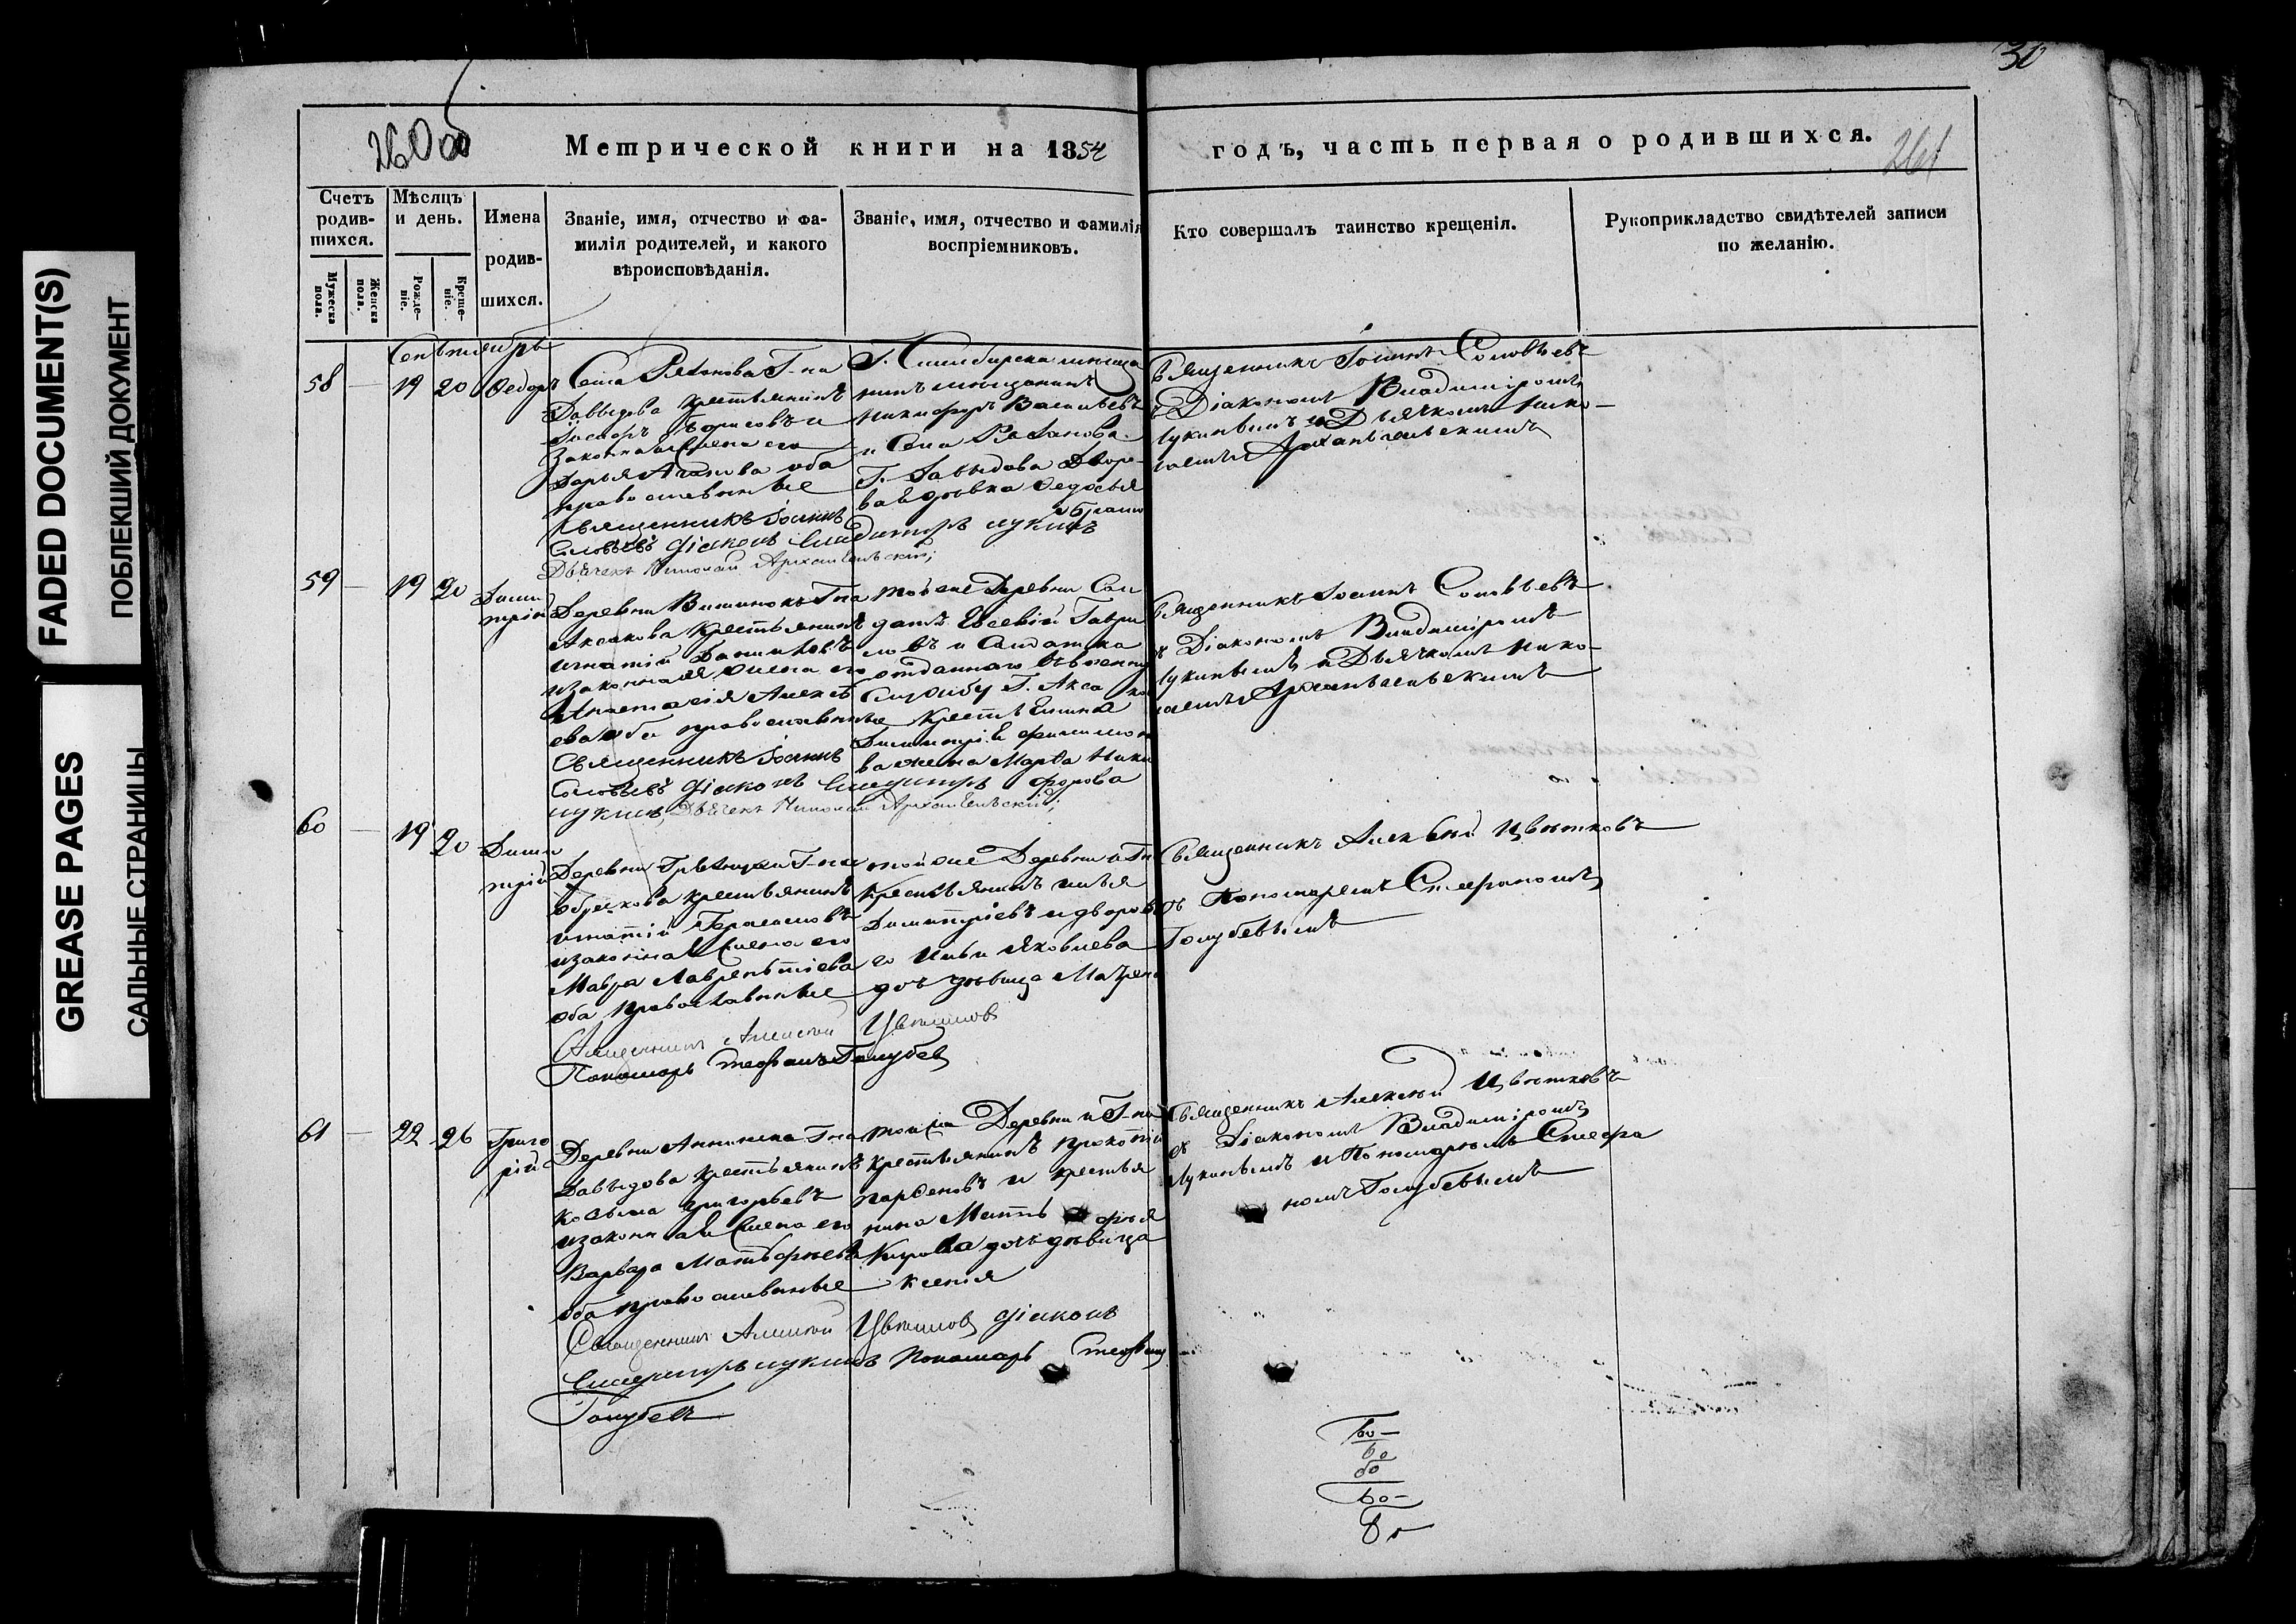 FADED DOCUMENT(S)
ПОБЛЕКШИЙ ДОКУМЕНТ
GREASE PAGES
САЛЬНЫЕ СТРАНИЦЫ
30
260об
Метрической книги на 1854
годъ, часть первая о родившихся.
261
Счетъ родив-шихся.
Мужеска пола.
Женска пола.
Мѣсяцъ и день.
Рожде-ніе.
Креще-ніе.
Имена
родив-
шихся.
Званіе, имя, отчество и фа-
милія родителей, и какого
вѣроисповѣданія.
Званіе, имя, отчество и фамилія
воспріемниковъ.
Кто совершалъ таинство крещенія.
Рукоприкладство свидѣтелей записи
по желанію.
Сентябрь
58 — 19 20 Ѳедоръ
Села Г-на
Давыдова крестьянинъ
Борисовъ и
законная жена его
Дарья оба
православные
Священникъ Іоаннъ
Соловьевъ Діаконъ Владимiръ Лукинъ
Дьячекъ Николай Архангельскій;
Г. Симбирска
мѣщанинъ
Никифоръ Васильевъ
и Села
Г. Давыдова Дворо-
вая дѣвка Ѳедосья
Священникъ Іоаннъ Соловьевъ
съ Діакономъ Владиміромъ
Лукинымъ и Дьячкомъ Нико-
лаемъ Архангельскимъ
59 — 19 20 Дими
трій
Деревни Г-на
Аксакова крестьянинъ
Игнатій Даниловъ
и законная жена его
Анастасія Алексѣ
ева оба православные
Священникъ Іоаннъ
Соловьевъ Діаконъ Владимiръ
Лукинъ, Дьячекъ Николай Архангельскій;
той же Деревни Сол
датъ Евсевій Гаври
ловъ и Солдатка
отданнаго въ военную
службу Г. Аксако
крестьянина
Димитрія Филимоно
ва жена Марѳа Ники
форова
Священникъ Іоаннъ Соловьевъ
съ Діакономъ Владиміромъ
Лукинымъ и Дьячкомъ Нико-
лаемъ Архангельскимъ
60 — 19 20 Дими
трій
Деревни Г-на
Обрескова крестьянинъ
Игнатій Герасимовъ
и законная жена его
Мавра Лаврентіева
оба православные
Священникъ Алексей Цветковъ
Пономарь Стефанъ Голубев
той же Деревни и Г-н
крестьянинъ Илья
Димитріевъ и дворов
го Ильи Яковлева
дочь дѣвица Матрена
Священникъ Алексѣй Цвѣтковъ
съ Пономаремъ Стефаномъ
Голубевымъ
61 — 22 26 Григо
рій
Деревни Анненка Г-на
Давыдова крестьянинъ
Косьма Григорьевъ
и законная жена его
Варвара Матвѣева
оба православные
Священникъ Алексей Цветковъ Діаконъ
Владимiръ Лукинъ Пономарь Стефанъ
Голубевъ
той же Деревни и Г-на
крестьянинъ Прокопій
Парѳеновъ и крестья
нина Матвѣя
Кирова дочь дѣвица
Ксенія
Священникъ Алексѣй Цвѣтковъ
съ Діакономъ Владиміромъ
Лукинымъ и Пономаремъ Стефа
номъ Голубевымъ
60 —
60
60
60 —